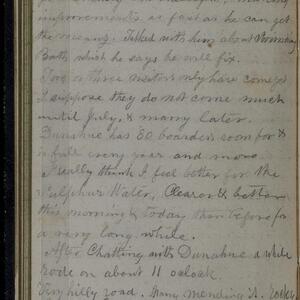 improvements as fast as he can get
the means. Talked with him about
Baths which he says he will fix.
Two or three visitors only have come yet
I suppose they do not come much
until July, & many later.
Dunahue has 80 boarders room for &
is full every year and more.
I really think I feel better for the
Sulphur Water, Clearer & better
this morning & today than before for
a very long while.
After Chatting with Dunahue a while
rode on about 11 oclock.
Very hilly road. Many mending it.